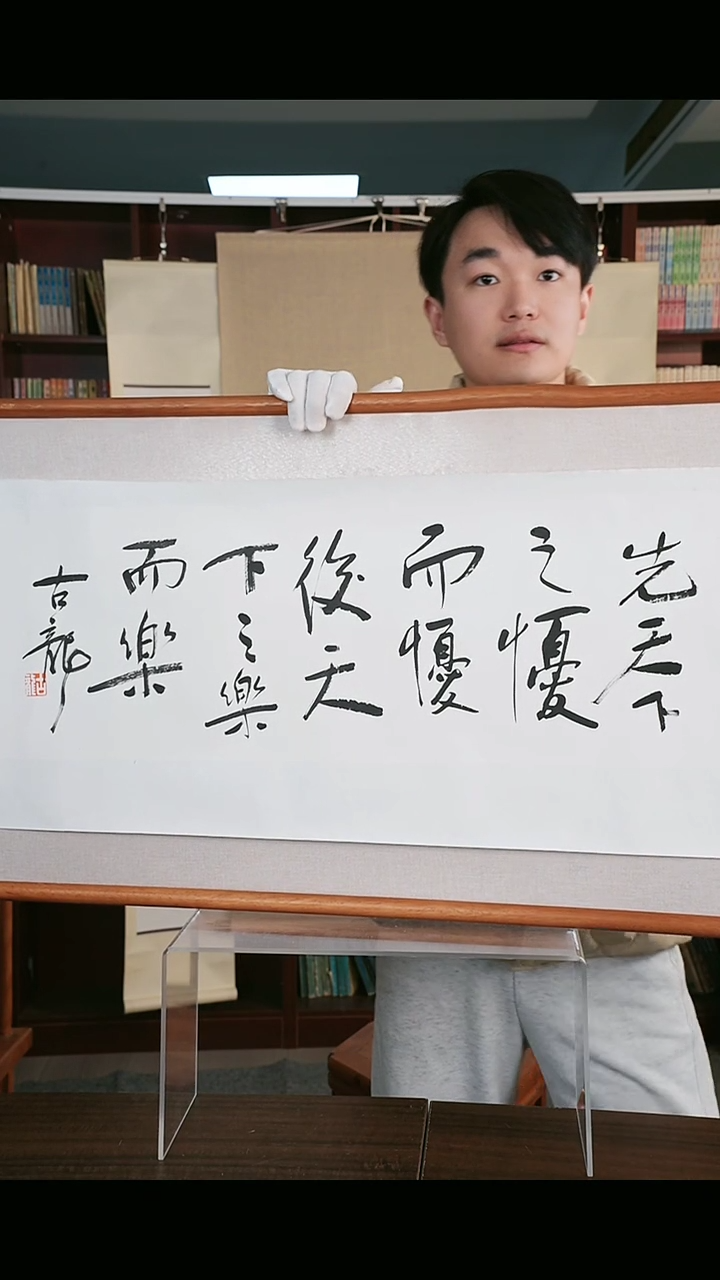 先天下
之憂
而憂
後天
下之樂
而樂
古龍
古龍